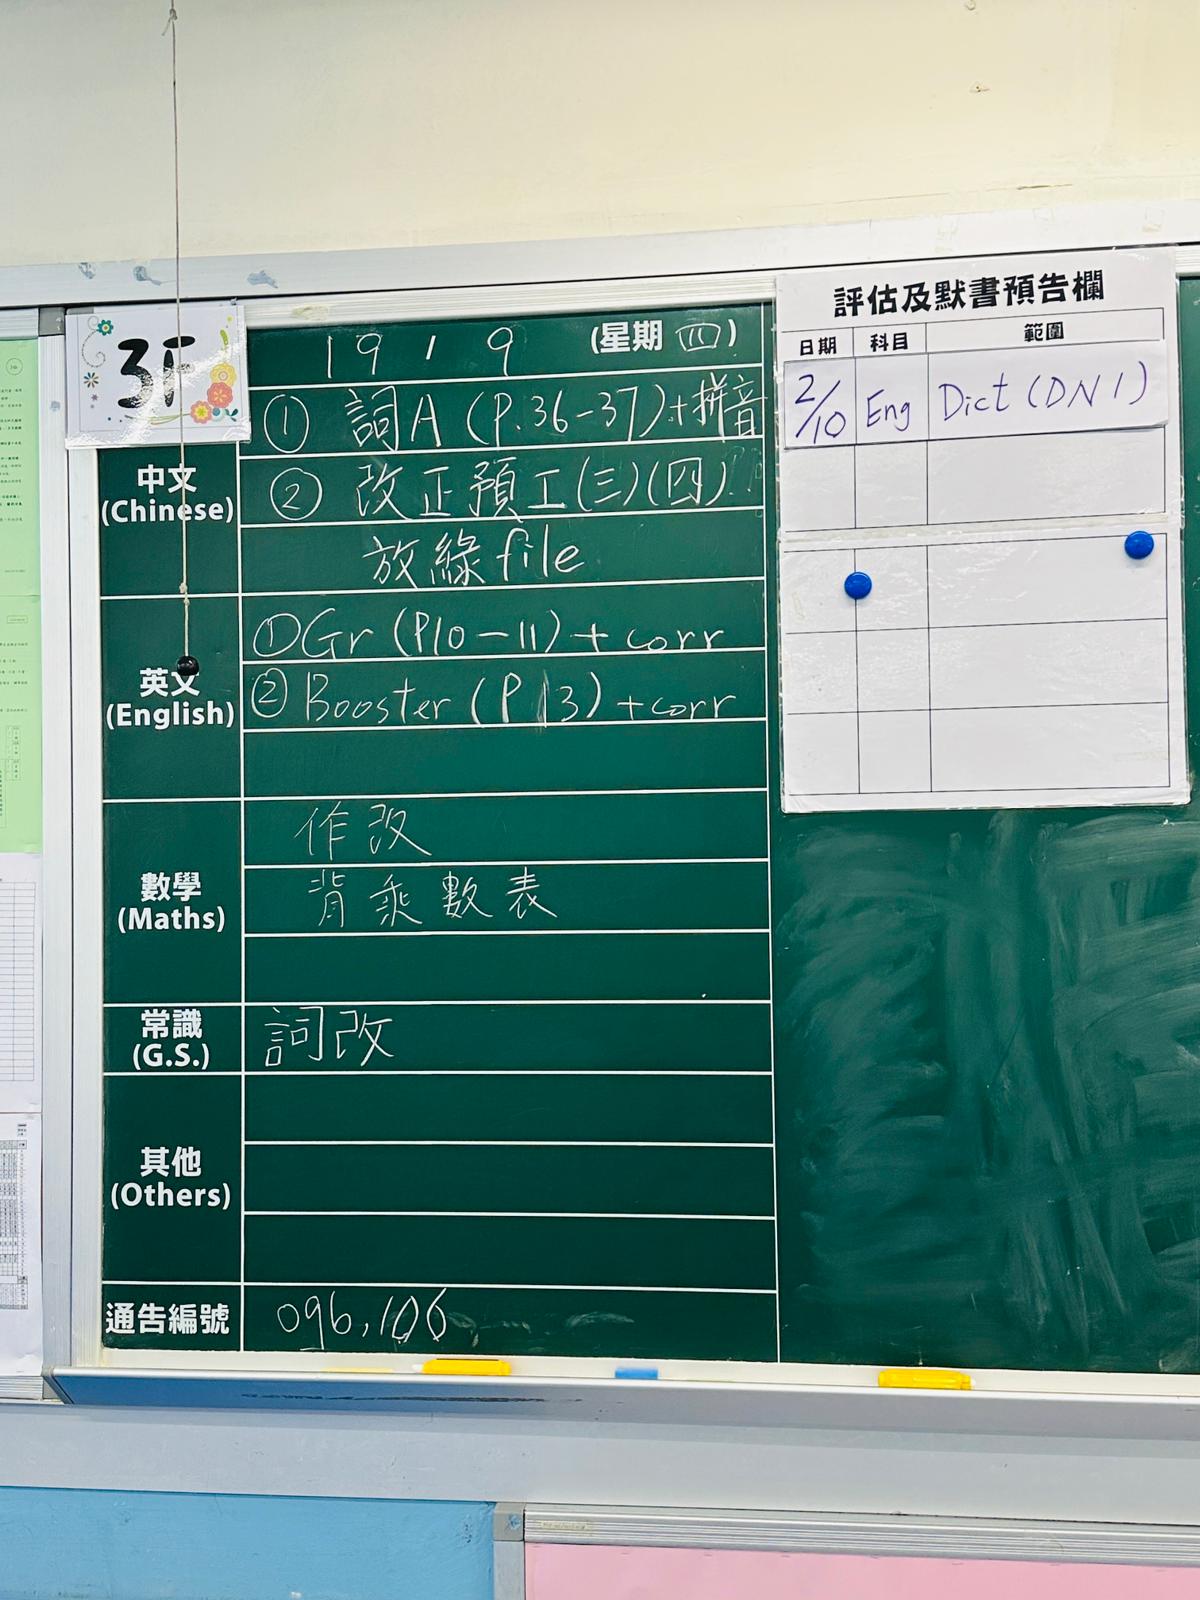 3F
19 / 9 (星期 四)
中文
(Chinese)
① 詞A (P.36-37)+拼音
② 改正預工(三)(四)
放綠file
英文
(English)
①Gr (P10-11) + corr
② Booster (P.13) + corr
數學
(Maths)
作改
背乘數表
常識
(G.S.)
詞改
其他
(Others)
通告編號
096,106
評估及默書預告欄
日期 科目 範圍
2/10 Eng Dict (DN 1)